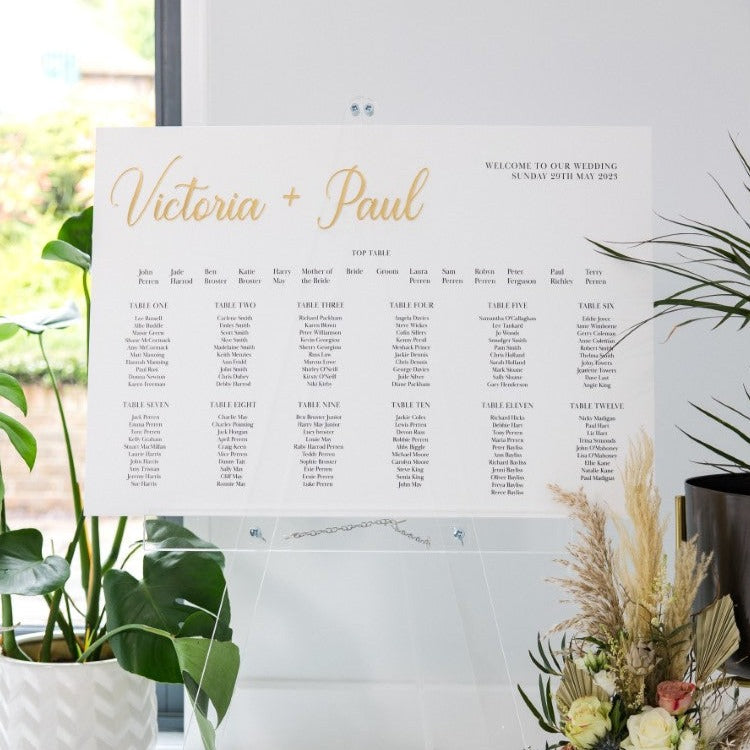 Victoria + Paul
WELCOME TO OUR WEDDING
SUNDAY 29TH MAY 2023
TOP TABLE
John Perren
Jade Harrod
Ben Broster
Katie Broster
Harry May
Mother of the Bride
Bride
Groom
Laura Perren
Sam Perren
Robyn Perren
Peter Ferguson
Paul Richley
Terry Perren
TABLE ONE
Lee Russell
Alfie Buddle
Maisie Green
Shane McCormack
Amy McCormack
Matt Manning
Hannah Manning
Paul Rost
Donna Newton
Karen Freeman
TABLE TWO
Carlene Smith
Tinley Smith
Scott Smith
Skye Smith
Madelaine Smith
Keith Menzies
Ann Feidd
John Smith
Chris Dabey
Debby Harrod
TABLE THREE
Richard Packham
Karen Bloxu
Peter Williamson
Kevin Georgiou
Sherry Georgiou
Russ Law
Maren Lowe
Shirley O'Neill
Kirsty O'Neill
Niki Kirby
TABLE FOUR
Angela Davies
Steve Wickes
Colin Sillers
Kenny Persil
Meshack Prince
Jackie Dennis
Chris Dennis
George Davies
Jude Silver
Diane Packham
TABLE FIVE
Samantha O'Callaghan
Lee Tankard
Jo Woods
Smudger Smith
Pam Smith
Chris Holland
Sarah Holland
Mark Sloane
Sally Sloane
Gary Henderson
TABLE SIX
Eddie Joyce
Anne Winborne
Gerry Coleman
Anne Coleman
Robert Smith
Thelma Smith
John Towers
Jeanette Towers
Dave Last
Angie King
TABLE SEVEN
Jack Perren
Emma Perren
Tony Perren
Kelly Graham
Stuart MacMillan
Laurie Harris
John Harris
Amy Tristan
Jeremy Harris
Sue Harris
TABLE EIGHT
Charlie May
Charley Ponning
Jack Horgan
April Perren
Craig Keen
Alice Perren
Danny Tait
Sally May
Cliff May
Ronnie May
TABLE NINE
Ben Broster Junior
Harry May Junior
Lucy broster
Louie May
Ruby Harrod Perren
Teddy Perren
Sophie Broster
Evie Perren
Ernie Perren
Luke Perren
TABLE TEN
Jackie Coles
Lewis Perren
Devon Russ
Bobbie Perren
Abby Biggle
Michael Moore
Carolyn Moore
Steve King
Sonia King
John May
TABLE ELEVEN
Richard Hicks
Debbie Hart
Tony Perren
Maria Perren
Peter Bayliss
Ann Bayliss
Richard Bayliss
Jenni Bayliss
Oliver Bayliss
Freya Bayliss
Reece Bayliss
TABLE TWELVE
Nicky Madigan
Paul Hart
Liz Hart
Trina Smonds
John O'Mahoney
Lisa O'Mahoney
Ellie Kane
Natalie Kane
Paul Madigan